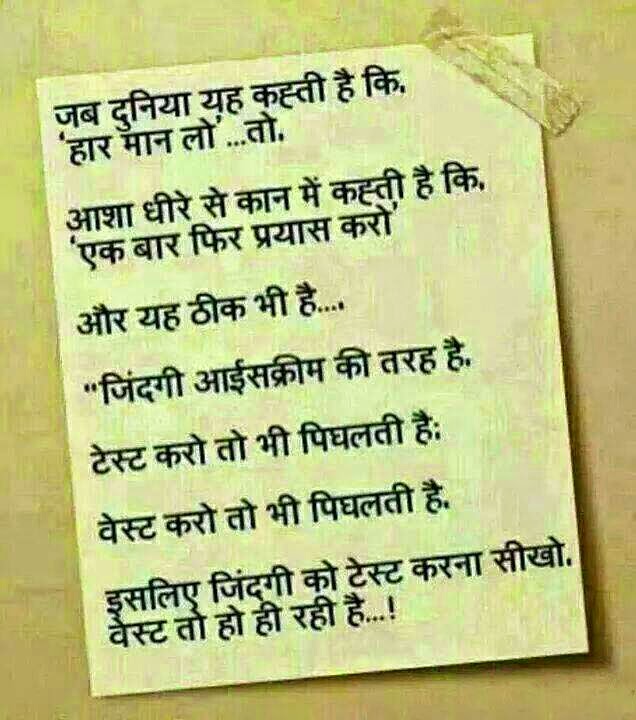 जब दुनिया यह कह्ती है कि.
'हार मान लो' ...तो.
आशा धीरे से कान में कह्ती है कि.
'एक बार फिर प्रयास करो'
और यह ठीक भी है....
"जिंदगी आईसक्रीम की तरह है.
टेस्ट करो तो भी पिघलती है:
वेस्ट करो तो भी पिघलती है.
इसलिए जिंदगी को टेस्ट करना सीखो.
वेस्ट तो हो ही रही है...!